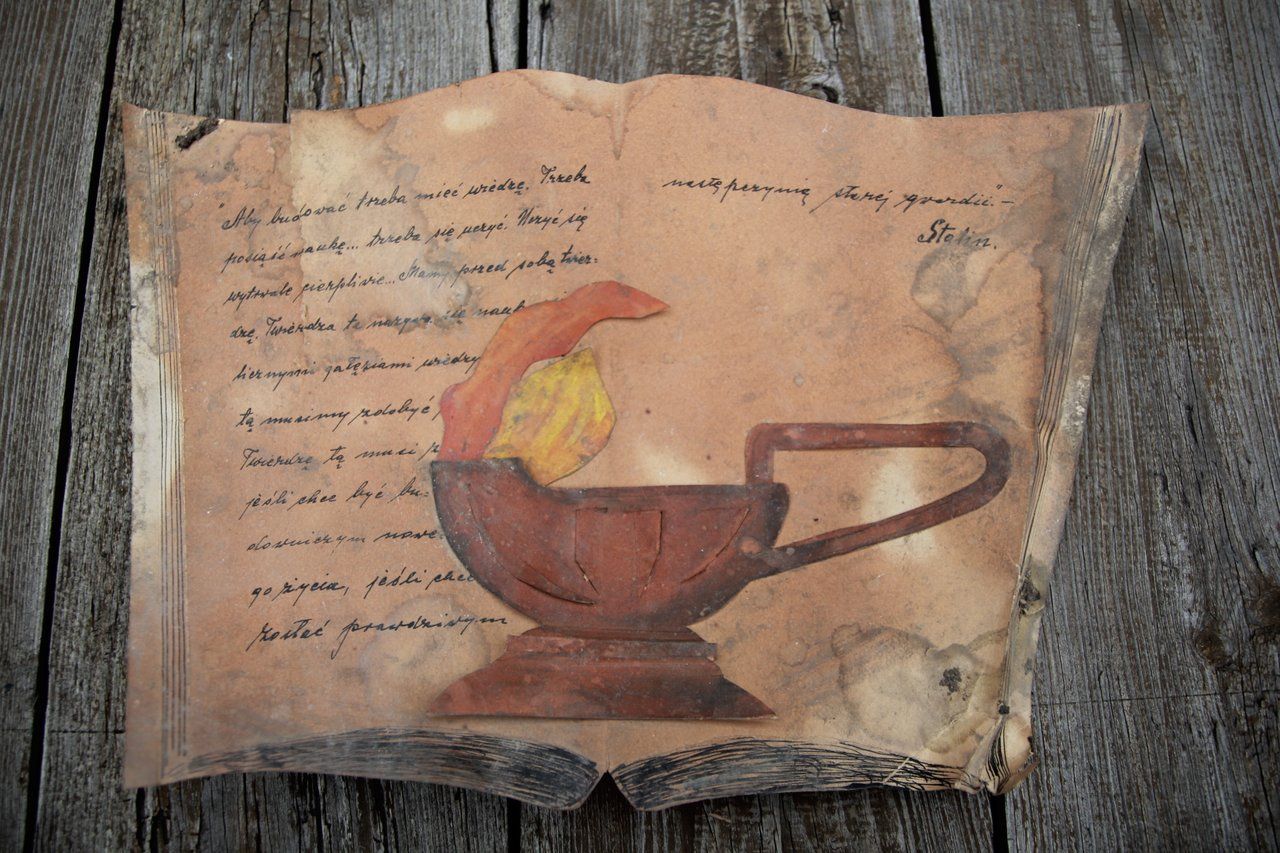 "Aby budować trzeba mieć wiedzę. Trzeba
posiąść naukę... trzeba się uczyć. Uczyć się
wytrwale cierpliwie... Mamy przed sobą twier-
dzę. Twierdza ta nazywa się nauk
licznymi gałęziami wiedzy
tą musimy zdobyć,
Twierdzę tą musi
jeśli chce być bu-
downiczym nowe-
go życia, jeśli chce
zostać prawdziwym
następczynią starej gwardii" —
Stalin.